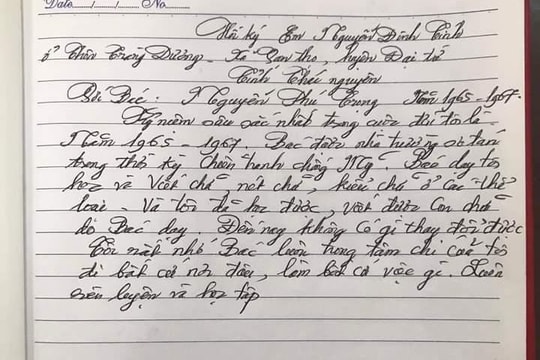 Date / / No
Hồi ký Em Nguyễn Đình Tính
ở Thôn Trung Dương - Xã Vạn thọ, huyện Đại từ
Tỉnh Thái nguyên
Gửi Bác: Nguyễn Phú Trọng Năm 1965 - 1967
Kỷ niệm sâu sắc nhất trong cuộc đời tôi là
Năm 1965 - 1967. Bác đến nhà trường sơ tán
trong thời kỳ chiến tranh chống Mỹ. Bác dạy tôi
học và viết chữ, nét chữ, kiểu chữ ở các thể
loại - Và tôi đã học được, viết được con chữ
do Bác dạy. Đến nay không có gì thay đổi được
Tôi rất nhớ Bác luôn trong tâm chí của tôi
đi bất cứ nơi đâu, làm bất cứ việc gì. Luôn
rèn luyện và học tập